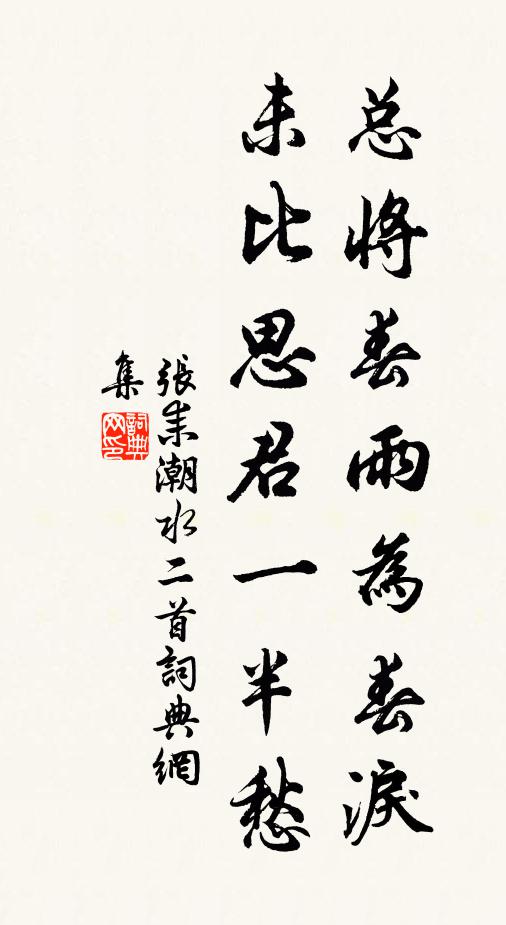 总將春雨為春淚
未比思君一半愁
張耒潮水二首詞典網
集
詞典
網印